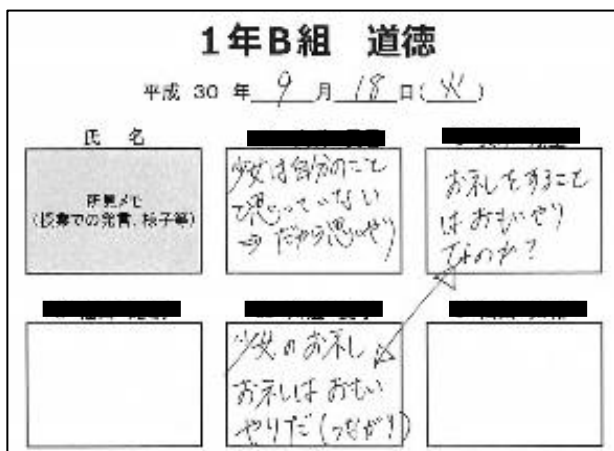 1年B組 道徳
平成 30 年 9 月 18 日(火)
氏 名
所見メモ
(授業での発言、様子等)
少女は自分のこと
で思っていない
⇒だから思いやり
お礼をすること
はおもいやり
なのか?
少女のお礼
お礼はおもい
やりだ(つながり)